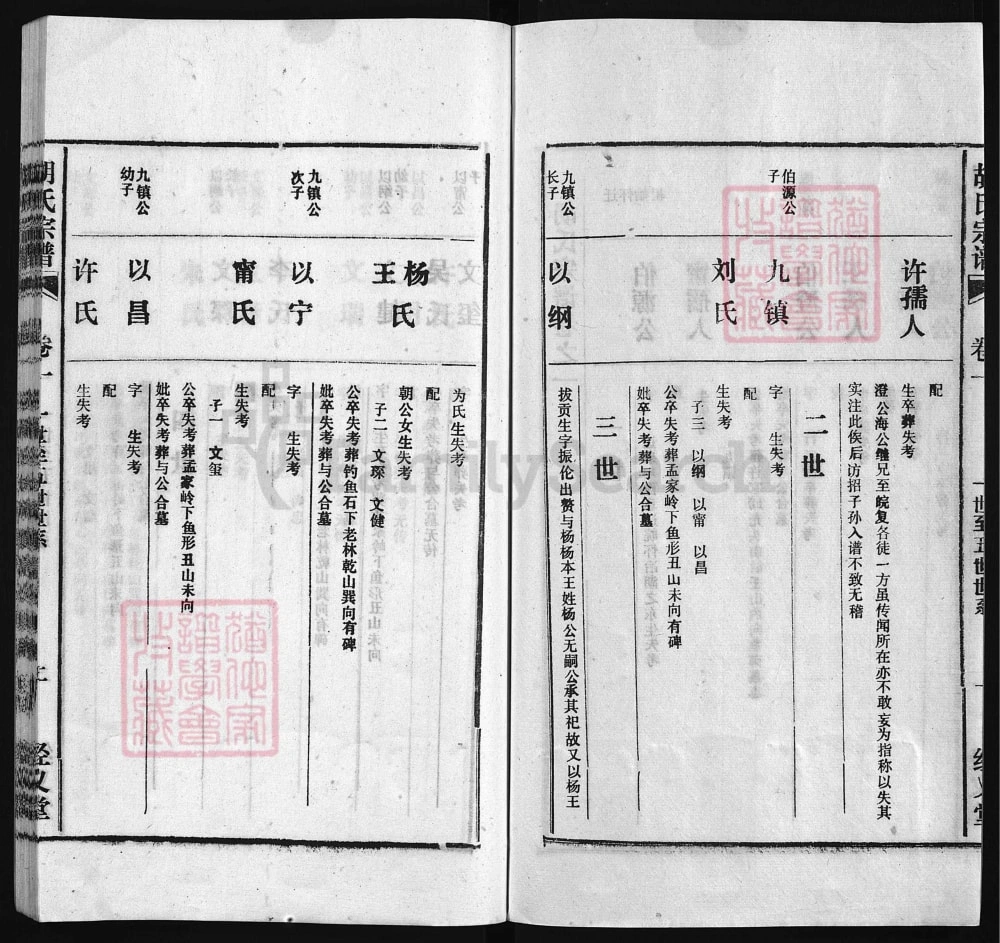 胡氏宗谱
卷一
一世至五世世系
许孺人
配
生卒葬失考
澄公海公继兄至皖复各徒一方虽传闻所在亦不敢妄为指称以失其
实注此俟后访招子孙入谱不致无稽
二世
伯源公
子
九镇
字
生失考
刘氏
配
生失考
子三 以纲 以甯 以昌
公卒失考葬孟家岭下鱼形丑山未向
妣卒失考葬与公合墓
三世
九镇公
长子
以纲
拔贡生字振伦出赘与杨杨本王姓杨公无嗣公承其祀故又以杨王
为氏生失考
杨氏
王
配
朝公女生失考
子二 文琛 文健
公卒失考葬钓鱼石下老林乾山巽向有碑
妣卒失考葬与公合墓
九镇公
次子
以宁
字
生失考
甯氏
配
生失考
子一 文玺
公卒失考葬孟家岭下鱼形丑山未向
妣卒失考葬与公合墓
九镇公
幼子
以昌
字
生失考
许氏
配
生失考
胡氏宗谱
卷一
一世至五世世系
经义堂
FamilySearch